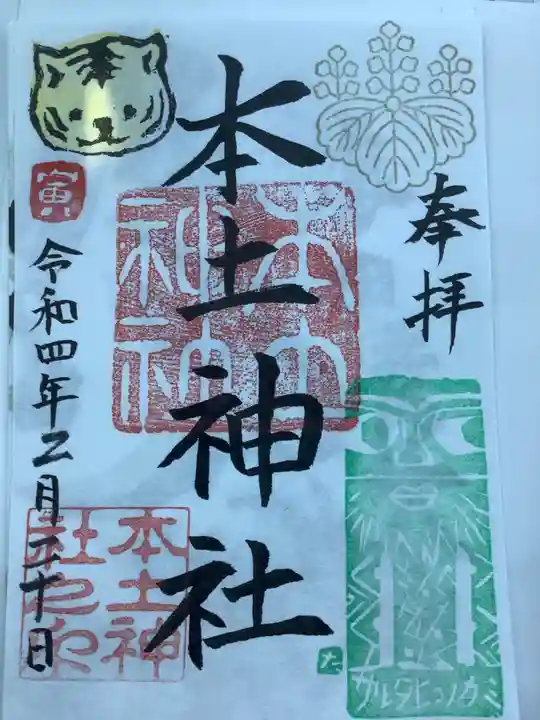 奉拝
本土神社
令和四年二月二十日
寅
本土神社
本土神社之印
サルタヒコノカミ
た